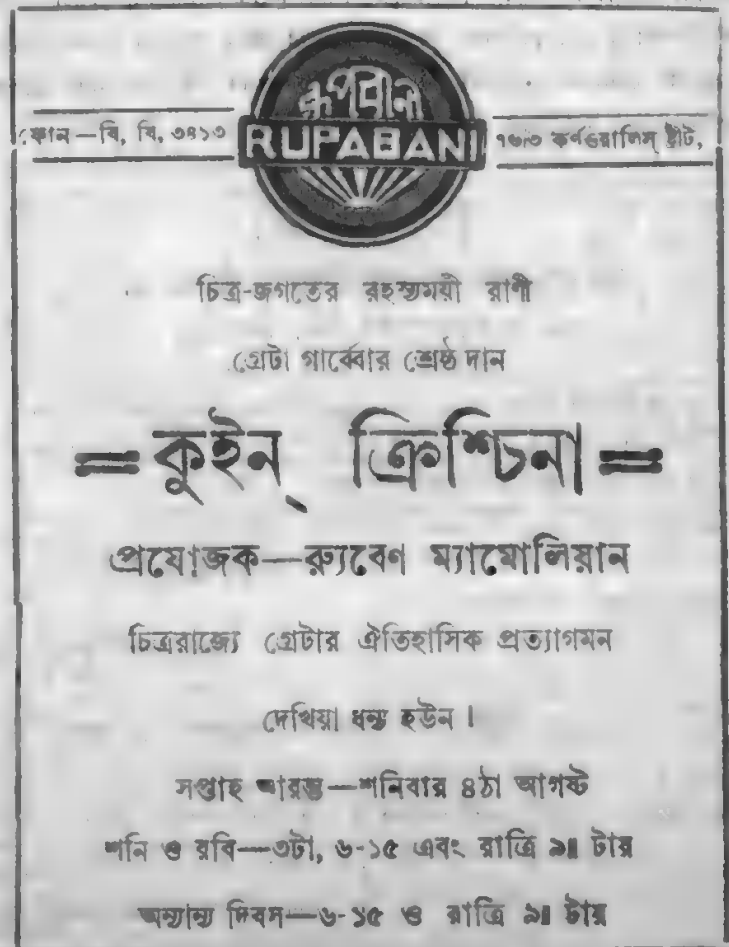 রূপবাণী
RUPABANI
ফোন—বি, বি, ৩৪১৩
৭৬।৩ কর্ণওয়ালিস্ ষ্ট্রীট,
চিত্র-জগতের রহস্যময়ী রাণী
গ্রেটা গার্ব্বোর শ্রেষ্ঠ দান
=কুইন্ ক্রিশ্চিনা=
প্রযোজক—র‍্যুবেণ ম্যামোলিয়ান
চিত্ররাজ্যে গ্রেটার ঐতিহাসিক প্রত্যাগমন
দেখিয়া ধন্য হউন।
সপ্তাহ আরম্ভ—শনিবার ৪ঠা আগষ্ট
শনি ও রবি—৩টা, ৬-১৫ এবং রাত্রি ৯॥ টায়
অন্যান্য দিবস—৬-১৫ ও রাত্রি ৯॥ টায়